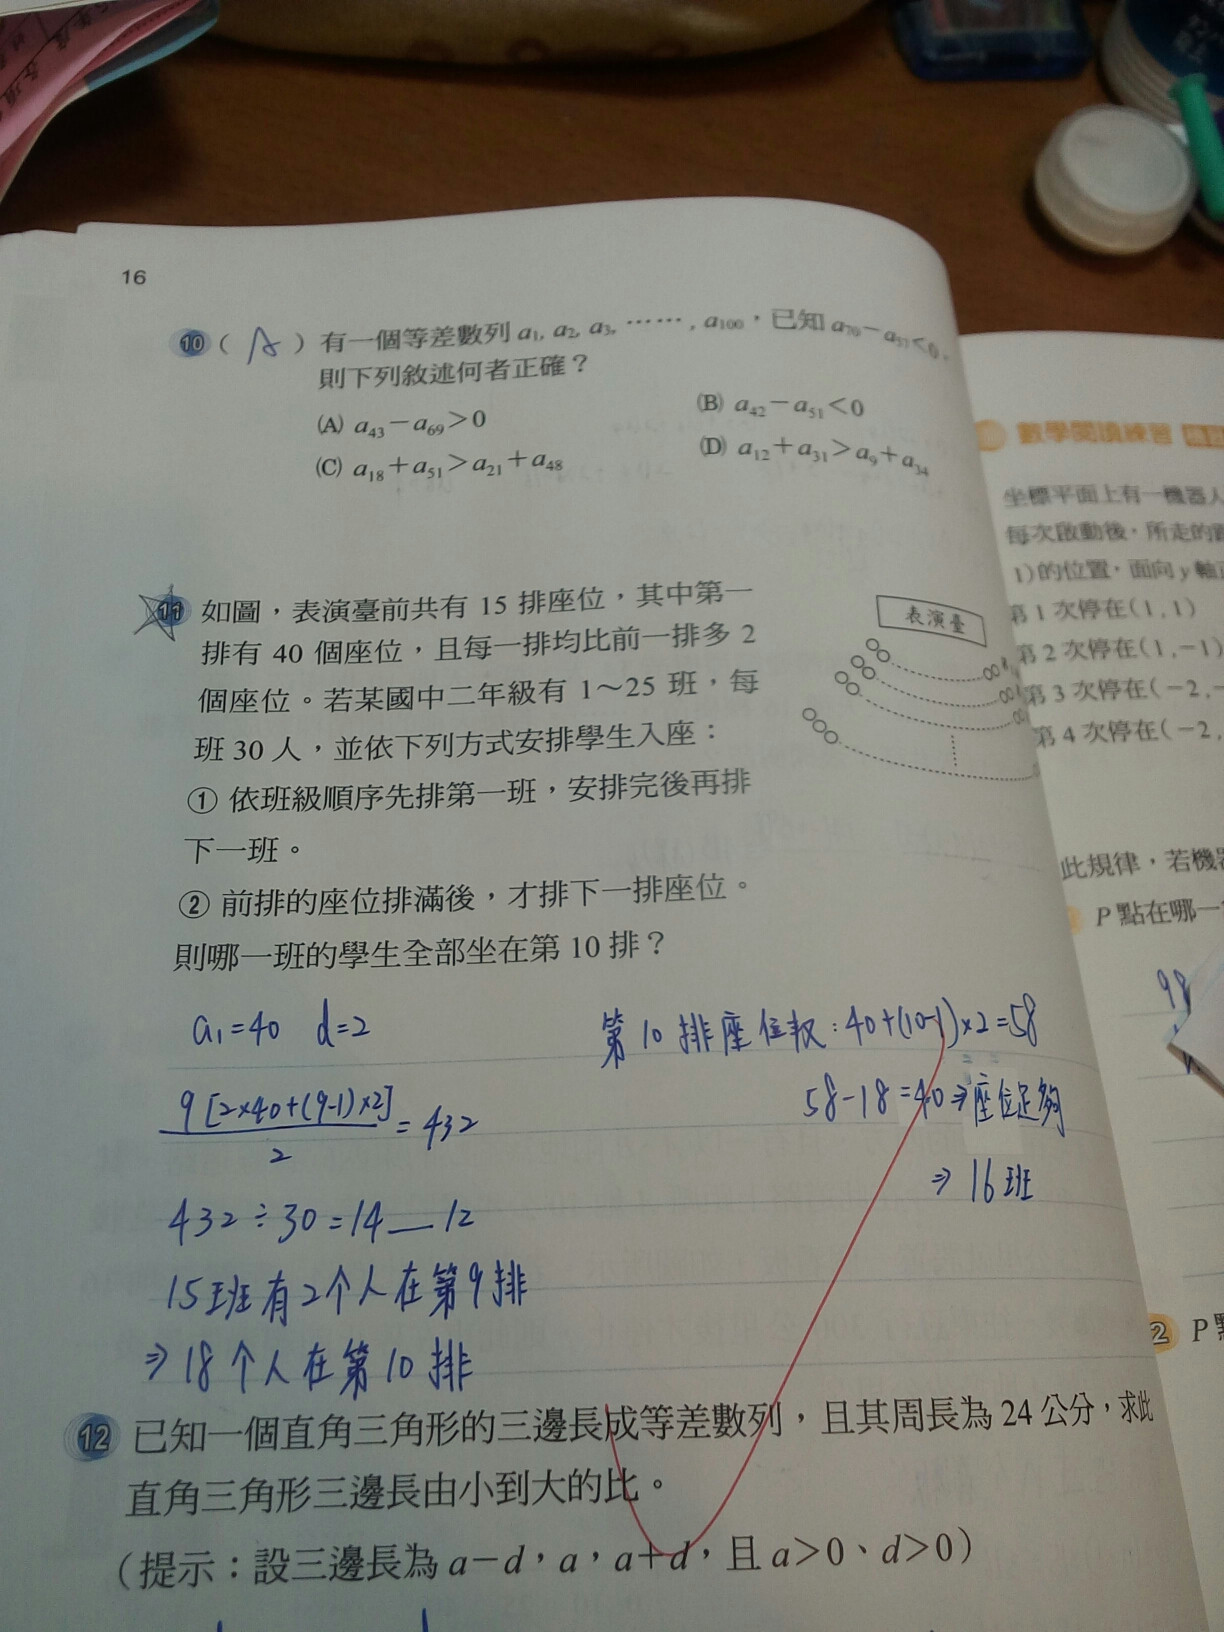 16
10 ( A ) 有一個等差數列 a₁, a₂, a₃, ……, a₁₀₀，已知 a₇₀－a₅₇＜0，
則下列敘述何者正確？
(A) a₄₃－a₆₉＞0
(B) a₄₂－a₅₁＜0
(C) a₁₈＋a₅₁＞a₂₁＋a₄₈
(D) a₁₂＋a₃₁＞a₉＋a₃₄
11 如圖，表演臺前共有 15 排座位，其中第一
排有 40 個座位，且每一排均比前一排多 2
個座位。若某國中二年級有 1～25 班，每
班 30 人，並依下列方式安排學生入座：
① 依班級順序先排第一班，安排完後再排
下一班。
② 前排的座位排滿後，才排下一排座位。
則哪一班的學生全部坐在第 10 排？
表演臺
a₁=40 d=2
9[2×40+(9-1)×2]
2
= 432
432÷30=14—12
15班有2个人在第9排
⇒18个人在第10排
第10排座位权:40+(10-1)×2=58
58-18=40⇒座位足夠
⇒16班
12 已知一個直角三角形的三邊長成等差數列，且其周長為 24 公分，求此
直角三角形三邊長由小到大的比。
（提示：設三邊長為 a－d，a，a＋d，且 a＞0、d＞0）
數學閱讀練習
坐標平面上有一機器人
每次啟動後，所走的
1)的位置，面向 y 軸
第 1 次停在(1,1)
第 2 次停在(1,－1)
第 3 次停在(－2,－
第 4 次停在(－2,
此規律，若機
P 點在哪一
98
2 P